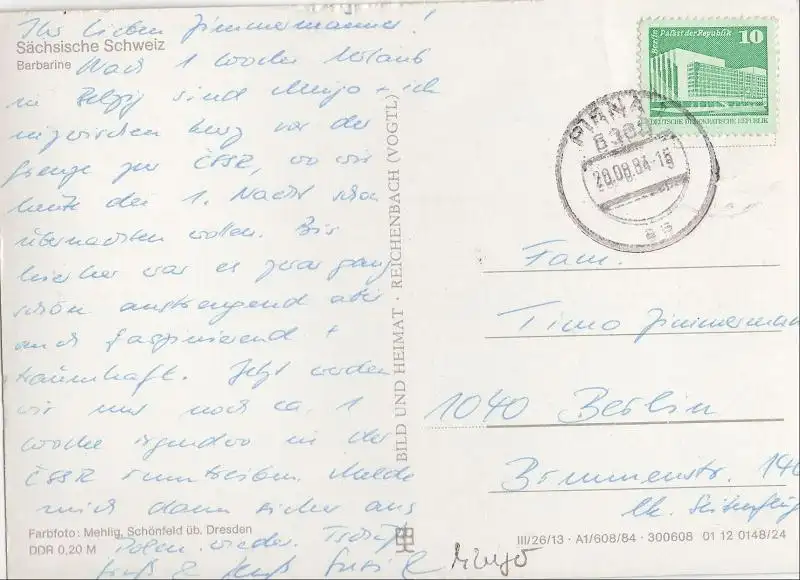 Ihr lieben Zimmermänner!
Sächsische Schweiz
Barbarine
Nach 1 Woche Urlaub
in sind Mingo + ich
inzwischen kurz vor der
Grenze zur ČSSR, wo wir
heute die 1. Nacht schon
übernachten wollen. Bis
hierher war es zwar ganz
schön anstrengend aber
auch faszinierend +
traumhaft. Jetzt werden
wir uns noch ca. 1
Woche irgendwo in der
ČSSR rumtreiben. Melde
mich dann sicher aus
Polen wieder. Tschüß
Gruß & Kuß
Mingo
Farbfoto: Mehlig, Schönfeld üb. Dresden
DDR 0,20 M
BILD UND HEIMAT · REICHENBACH (VOGTL)
III/26/13 · A1/608/84 · 300608 01 12 0148/24
Berlin Palast der Republik 10
DEUTSCHE DEMOKRATISCHE REPUBLIK
PIRNA
8300
20.08.84-16
Fam.
Timo Zimmermann
1040 Berlin
Brunnenstr. 140
lk. Seitenflüg